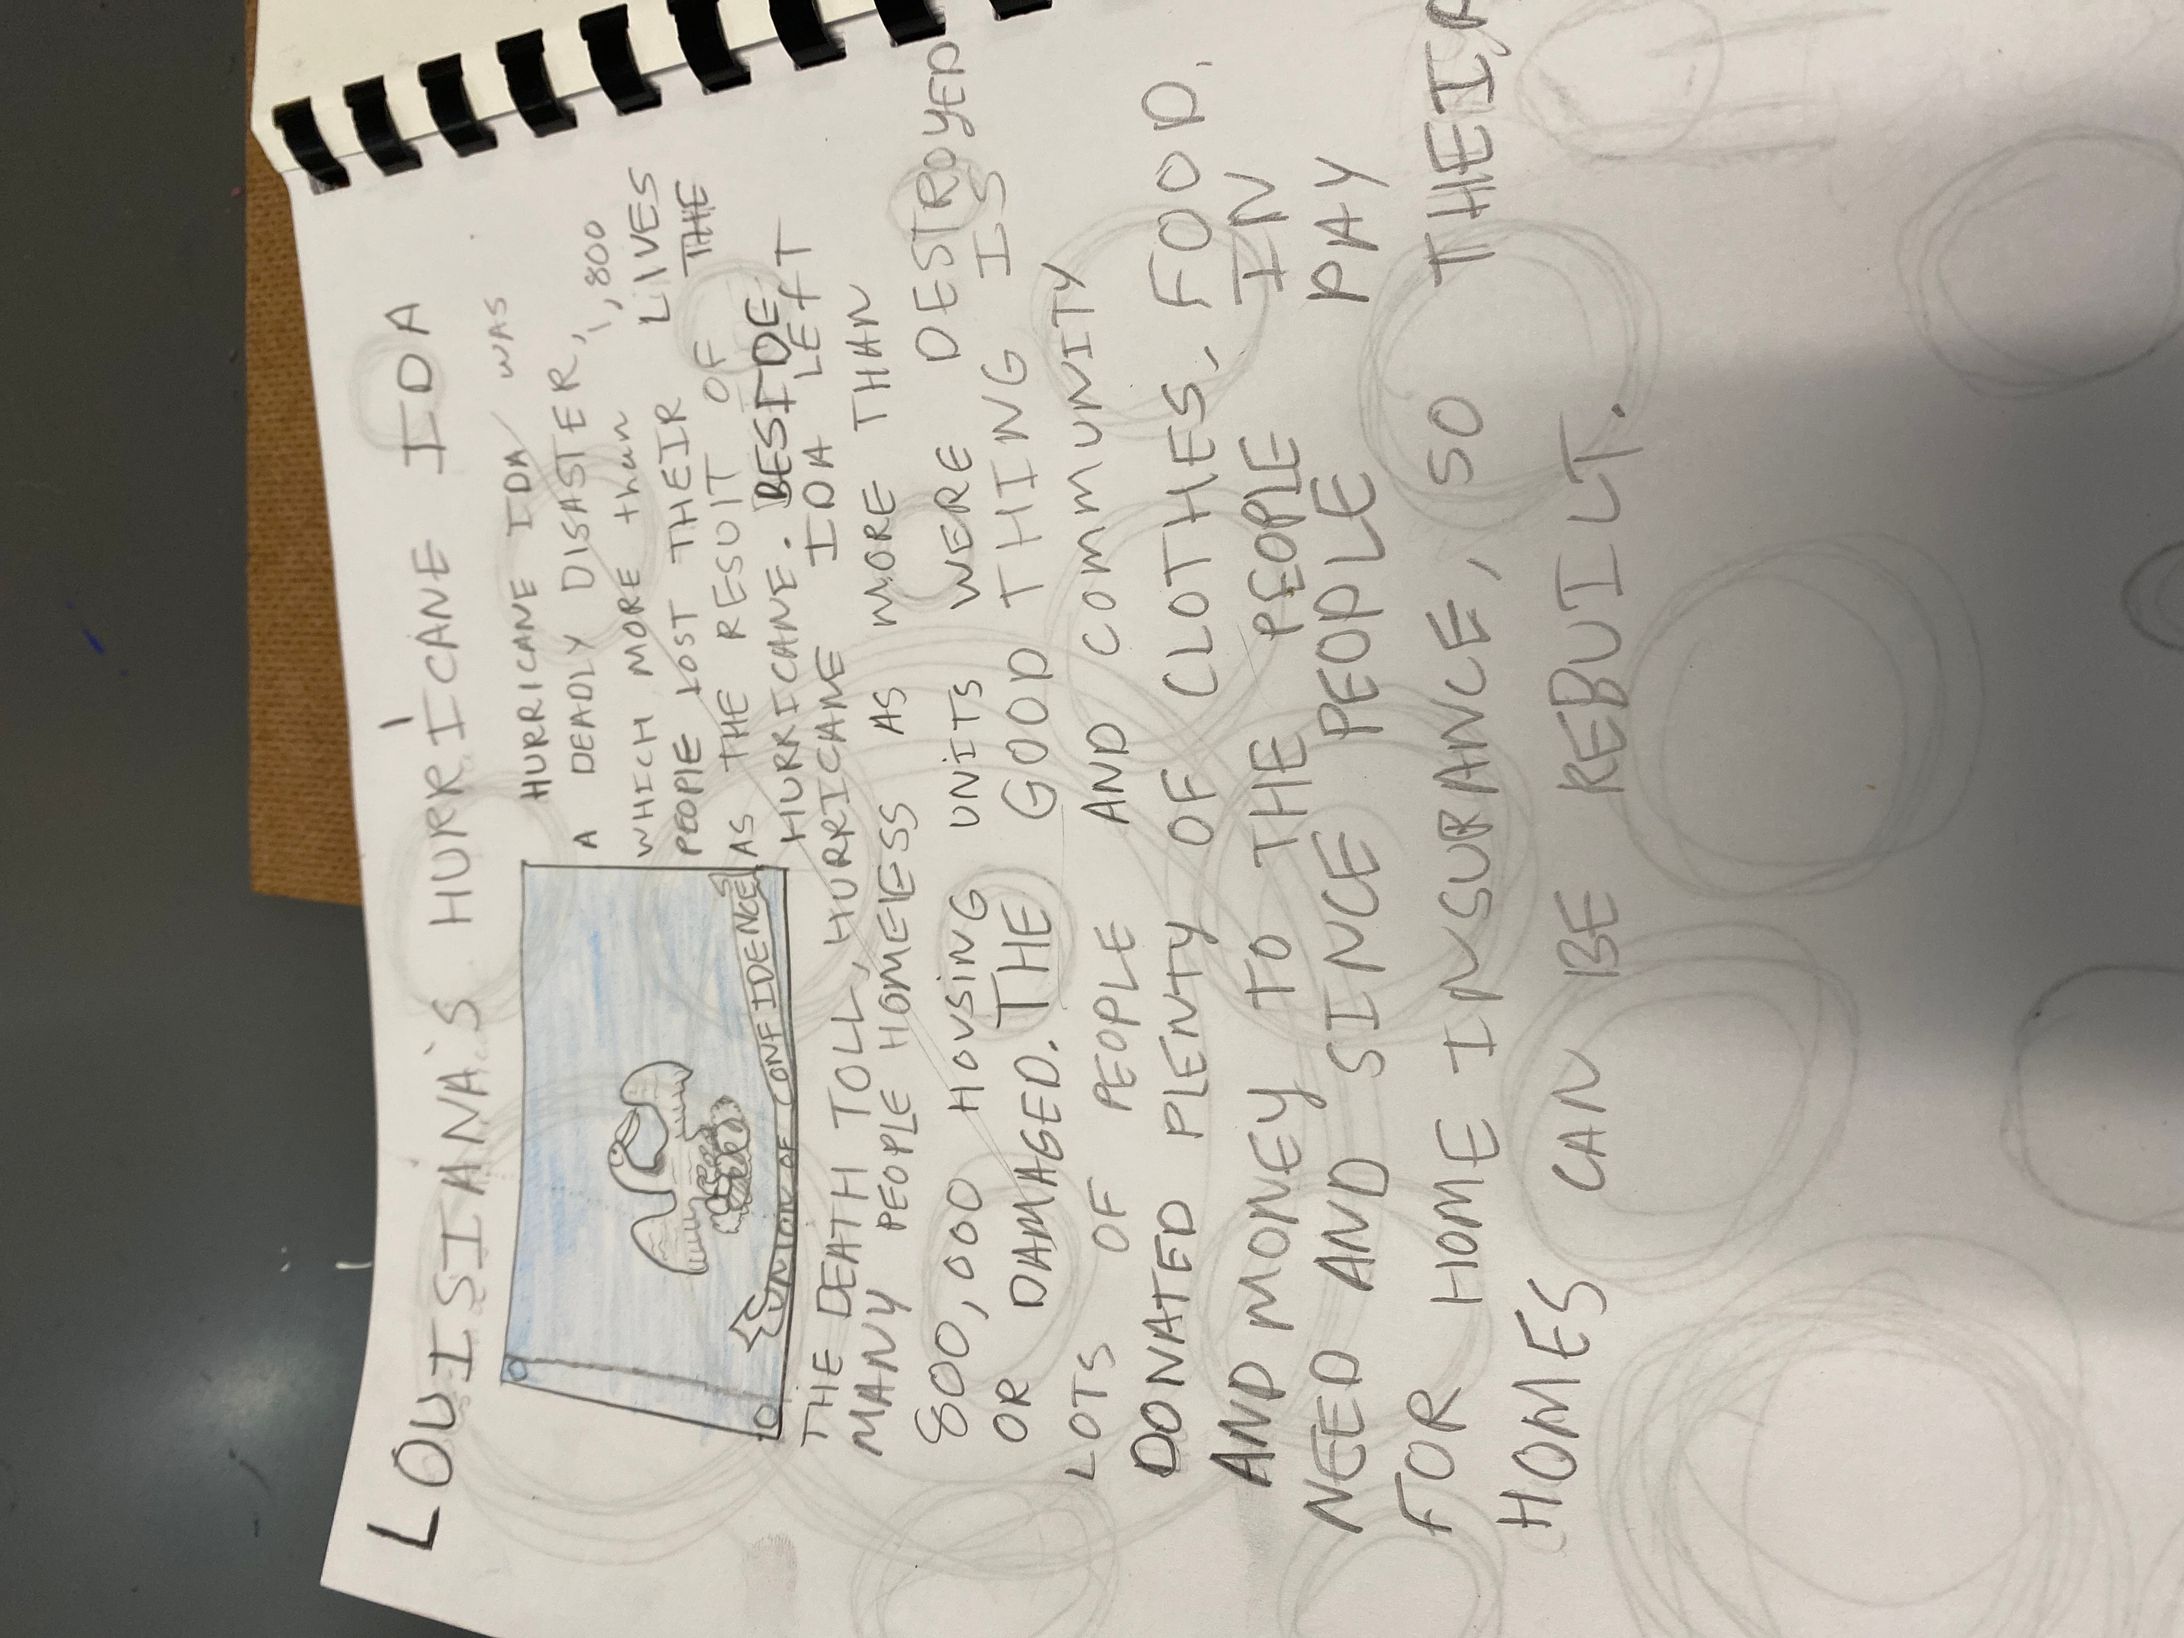 LOUISIANA'S HURRICANE IDA
HURRICANE IDA WAS
A DEADLY DISASTER,
WHICH MORE than 1,800
PEOPlE LOST THEIR LIVES
AS THE RESUlT OF THE
HURRICANE. BESIDE
UNION OF CONFIDENCES
THE DEATH TOLL, HURRICANE IDA LEfT
MANY PEOPLE HOMElESS AS MORE THAN
800,000 HOUSiNG UNITS WERE DESTROYED
OR DAMAGED. THE GOOD THING IS
LOTS OF PEOPLE AND COMMUNITY
DONATED PLENTY OF CLOTHES, FOOD,
AND MONEY TO THE PEOPLE IN
NEED AND SINCE PEOPLE PAY
FOR HOME INSURANCE, SO THEIR
HOMES CAN BE REBUILT.